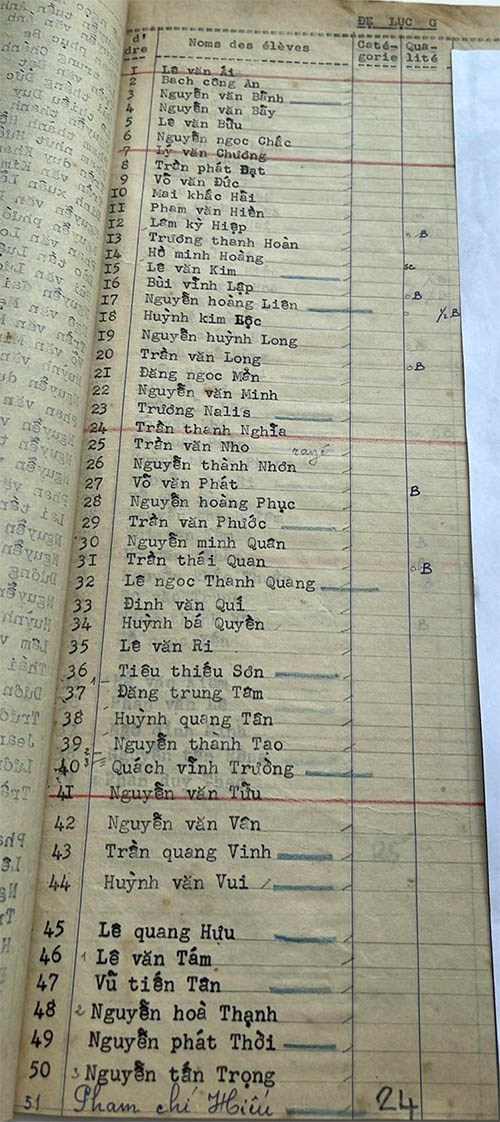 ĐỆ LỤC G
d'
dre Noms des élèves Caté-gorie Qua-lité
1 Lê văn Ái
2 Bach công An
3 Nguyễn văn Bảnh
4 Nguyễn văn Bảy
5 Lê văn Bửu
6 Nguyễn ngọc Chắc
7 Lý văn Chương
8 Trần phát Đạt
9 Võ văn Đức
10 Mai khắc Hải
11 Phạm văn Hiền
12 Lâm kỳ Hiệp
13 Trương thanh Hoàn B
14 Hồ minh Hoàng
15 Lê văn Kim sc
16 Bùi vĩnh Lập B
17 Nguyễn hoàng Liên 1/2 B
18 Huỳnh kim Lộc
19 Nguyễn huỳnh Long
20 Trần văn Long B
21 Đặng ngọc Mẫn
22 Nguyễn văn Minh
23 Trương Nalis
24 Trần thanh Nghĩa
25 Trần văn Nho rayé
26 Nguyễn thành Nhơn
27 Võ văn Phát B
28 Nguyễn hoàng Phục
29 Trần văn Phước
30 Nguyễn minh Quân
31 Trần thái Quan B
32 Lê ngọc Thanh Quang
33 Đinh văn Quí
34 Huỳnh bá Quyền
35 Lê văn Ri
36 Tiêu thiếu Sơn
37 Đặng trung Tâm
38 Huỳnh quang Tân
39 Nguyễn thành Tạo
40 Quách vĩnh Trường
41 Nguyễn văn Tửu
42 Nguyễn văn Vân
43 Trần quang Vinh
44 Huỳnh văn Vui
45 Lê quang Hựu
46 1 Lê văn Tấm
47 Vũ tiến Tân
48 2 Nguyễn hoà Thạnh
49 Nguyễn phát Thời
50 3 Nguyễn tấn Trọng
51 Phạm chí Hiếu 24